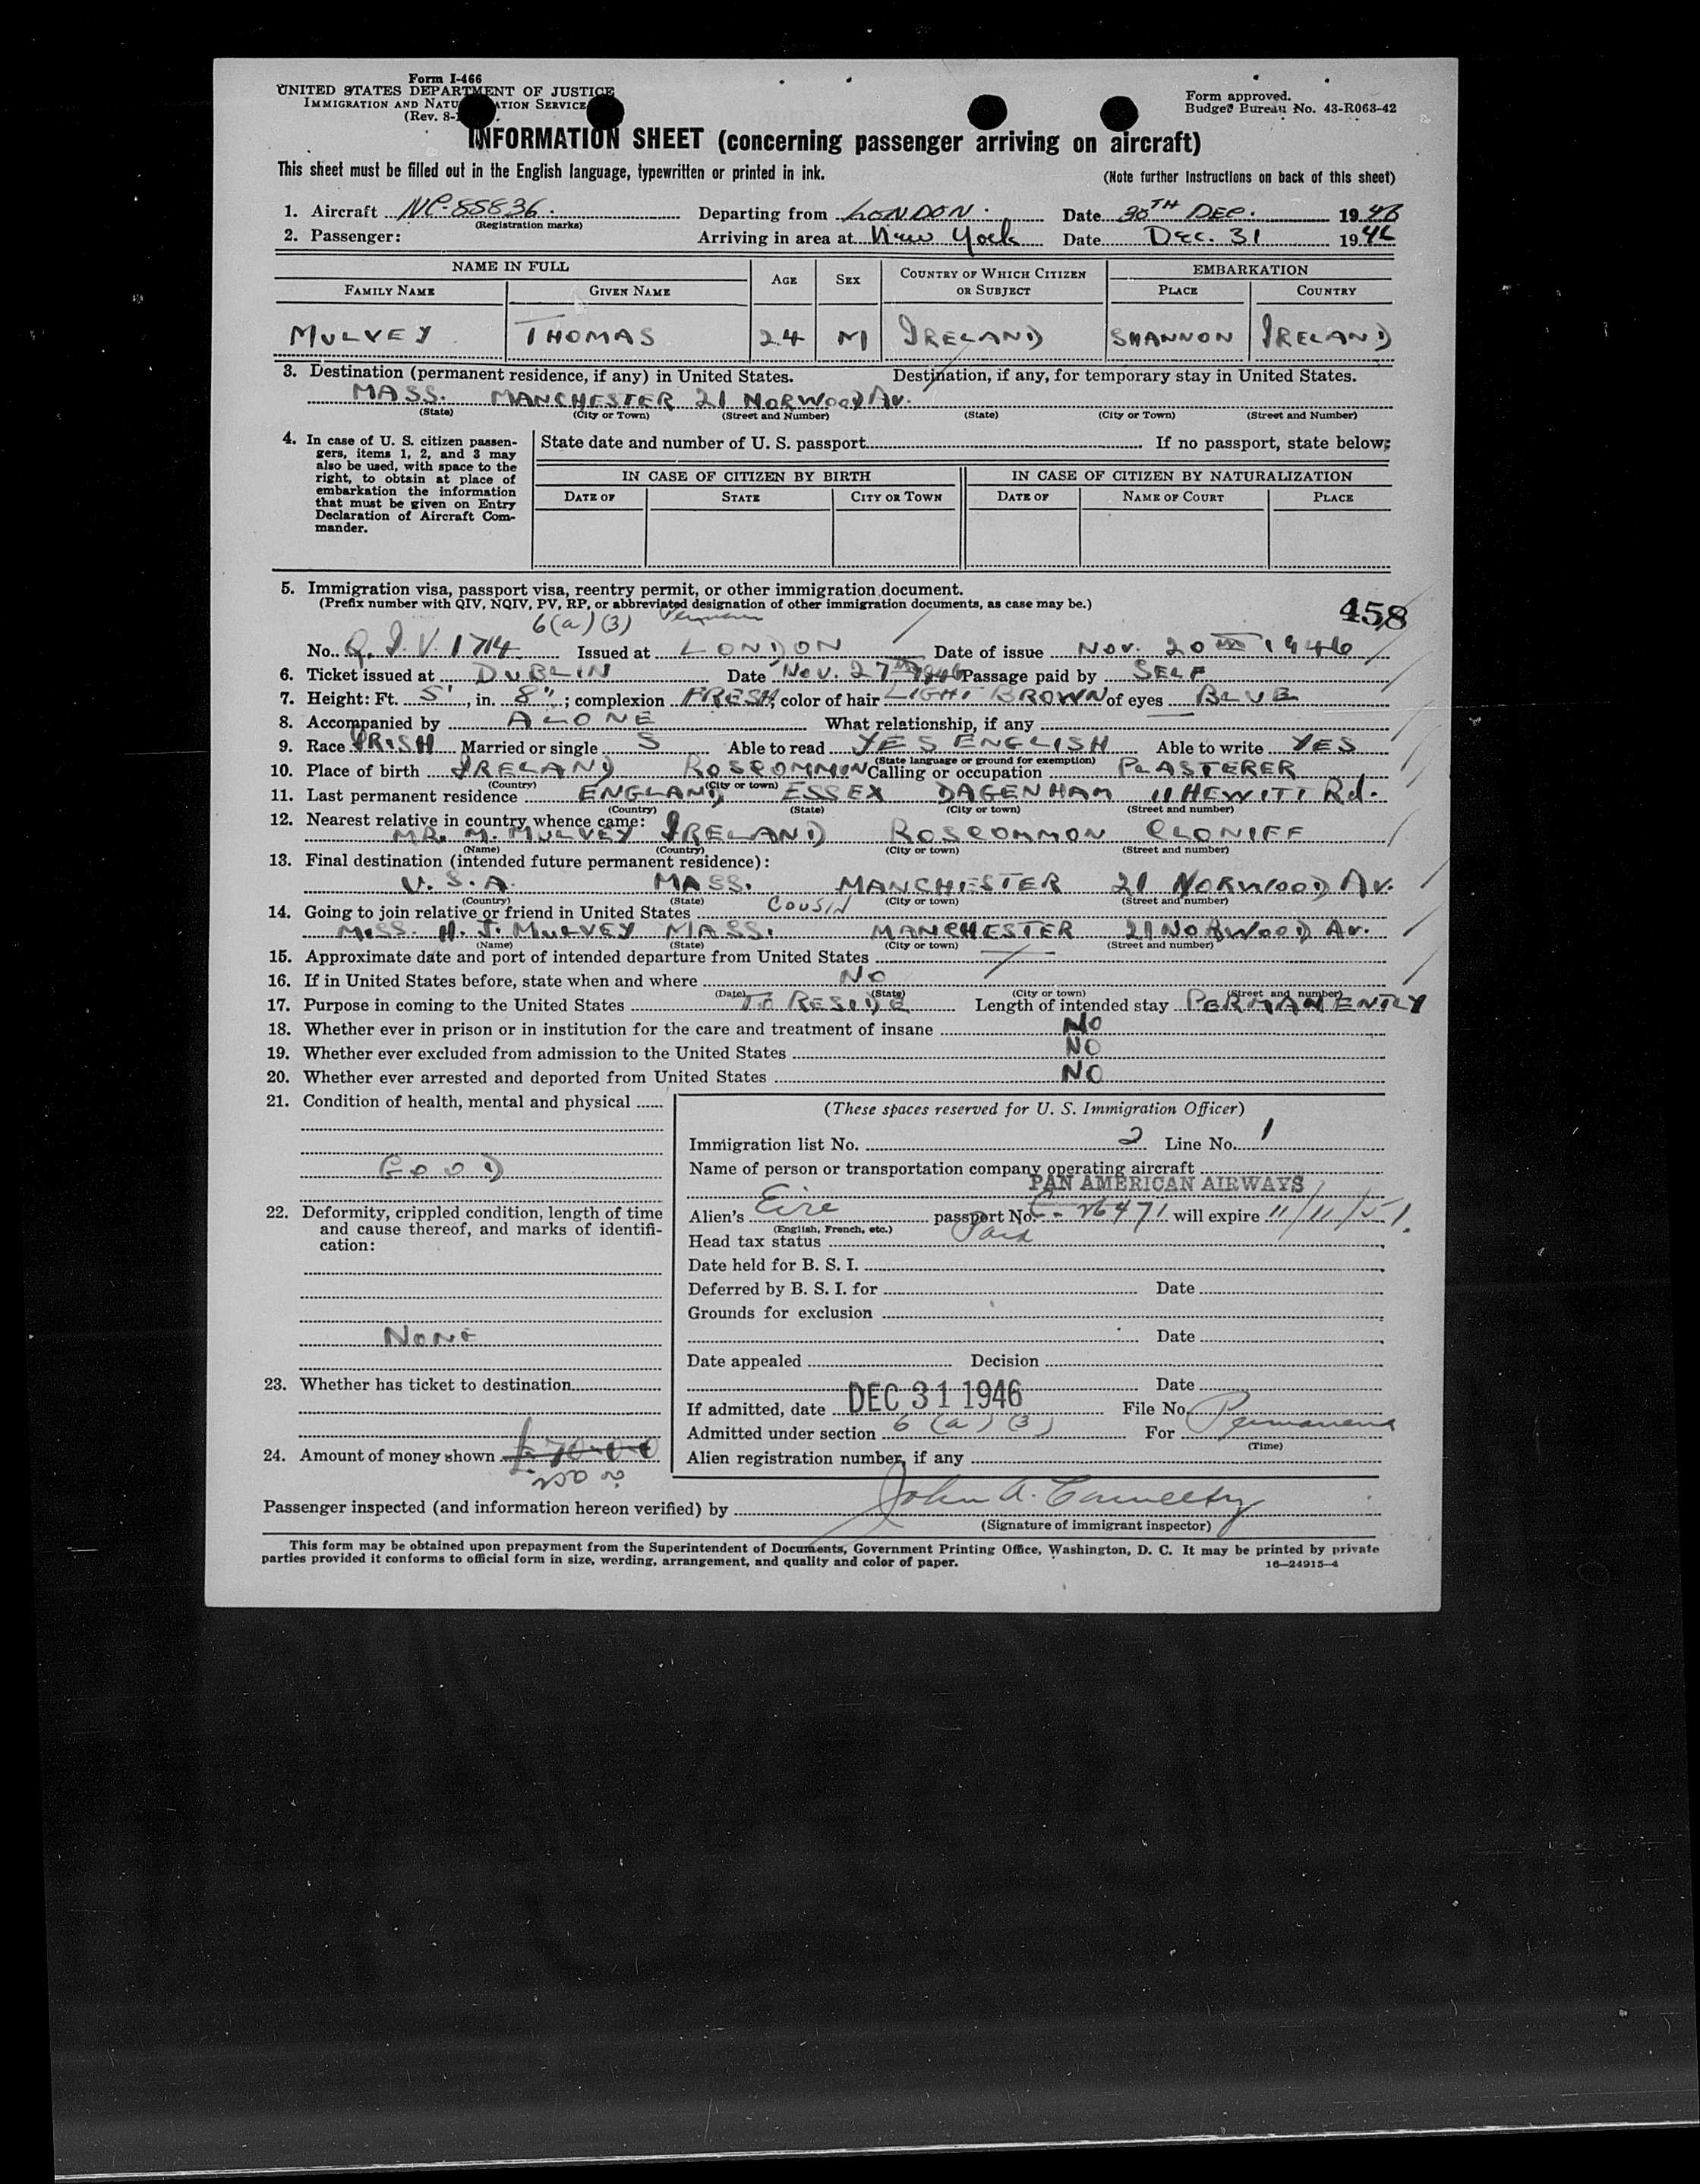 Form I-466
UNITED STATES DEPARTMENT OF JUSTICE
IMMIGRATION AND NATU ATION SERVICE
(Rev. 8-
Form approved.
Budget Bureau No. 43-R063-42
INFORMATION SHEET (concerning passenger arriving on aircraft)
This sheet must be filled out in the English language, typewritten or printed in ink. (Note further instructions on back of this sheet)
1. Aircraft NC-88836. Departing from LONDON. Date 30TH DEC. 1946
(Registration marks)
2. Passenger: Arriving in area at New York Date Dec. 31 1946
NAME IN FULL AGE SEX COUNTRY OF WHICH CITIZEN OR SUBJECT EMBARKATION
FAMILY NAME GIVEN NAME PLACE COUNTRY
MULVEY THOMAS 24 M IRELAND SHANNON IRELAND
3. Destination (permanent residence, if any) in United States. Destination, if any, for temporary stay in United States.
MASS. MANCHESTER 21 NORWOOD AV.
(State) (City or Town) (Street and Number) (State) (City or Town) (Street and Number)
4. In case of U. S. citizen passen-
gers, items 1, 2, and 3 may
also be used, with space to the
right, to obtain at place of
embarkation the information
that must be given on Entry
Declaration of Aircraft Com-
mander.
State date and number of U. S. passport If no passport, state below:
IN CASE OF CITIZEN BY BIRTH IN CASE OF CITIZEN BY NATURALIZATION
DATE OF STATE CITY OR TOWN DATE OF NAME OF COURT PLACE
5. Immigration visa, passport visa, reentry permit, or other immigration document.
(Prefix number with QIV, NQIV, PV, RP, or abbreviated designation of other immigration documents, as case may be.)
458
6(a)(3)
No. Q.I.V. 1714 Issued at LONDON Date of issue NOV. 20TH 1946
6. Ticket issued at DUBLIN Date NOV. 27TH 1946 Passage paid by SELF
7. Height: Ft. 5', in. 8"; complexion FRESH; color of hair LIGHT BROWN of eyes BLUE
8. Accompanied by ALONE What relationship, if any —
9. Race IRISH Married or single S Able to read YES ENGLISH Able to write YES
(State language or ground for exemption)
10. Place of birth IRELAND ROSCOMMON Calling or occupation PLASTERER
(Country) (City or town)
11. Last permanent residence ENGLAND, ESSEX DAGENHAM 11 HEWITT Rd.
(Country) (State) (City or town) (Street and number)
12. Nearest relative in country whence came:
MR. M. MULVEY IRELAND ROSCOMMON CLONIFF
(Name) (Country) (City or town) (Street and number)
13. Final destination (intended future permanent residence):
U.S.A. MASS. MANCHESTER 21 NORWOOD AV.
(Country) (State) (City or town) (Street and number)
14. Going to join relative or friend in United States COUSIN
MISS. H. J. MULVEY MASS. MANCHESTER 21 NORWOOD AV.
(Name) (State) (City or town) (Street and number)
15. Approximate date and port of intended departure from United States —
16. If in United States before, state when and where NO
(Date) (State) (City or town) (Street and number)
17. Purpose in coming to the United States TO RESIDE Length of intended stay PERMANENTLY
18. Whether ever in prison or in institution for the care and treatment of insane NO
19. Whether ever excluded from admission to the United States NO
20. Whether ever arrested and deported from United States NO
21. Condition of health, mental and physical
GOOD
22. Deformity, crippled condition, length of time
and cause thereof, and marks of identifi-
cation:
NONE
23. Whether has ticket to destination
24. Amount of money shown £70-0-0
(These spaces reserved for U. S. Immigration Officer)
Immigration list No. 2 Line No. 1
Name of person or transportation company operating aircraft
PAN AMERICAN AIRWAYS
Alien's Eire passport No. C-26471 will expire 11/11/51.
(English, French, etc.)
Head tax status Paid
Date held for B. S. I.
Deferred by B. S. I. for Date
Grounds for exclusion
Date
Date appealed Decision
Date
If admitted, date DEC 31 1946 File No.
Admitted under section 6(a)(3) For Permanent
(Time)
Alien registration number, if any
Passenger inspected (and information hereon verified) by John A.
(Signature of immigrant inspector)
This form may be obtained upon prepayment from the Superintendent of Documents, Government Printing Office, Washington, D. C. It may be printed by private
parties provided it conforms to official form in size, wording, arrangement, and quality and color of paper.
16—24915-4